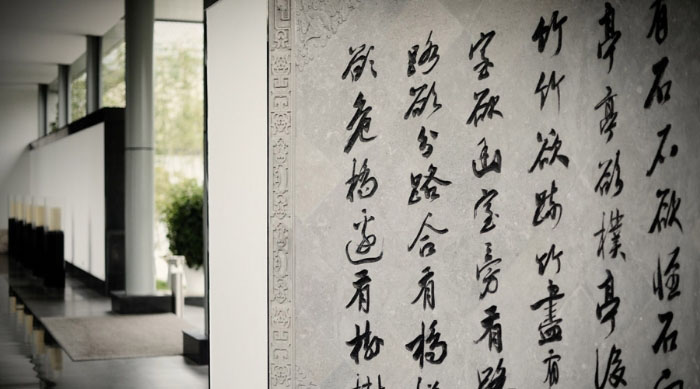 有石石欲怪石
亭亭欲樸亭後
竹竹欲踈竹盡有
室欲幽室旁有路
路欲分路合有橋
欲危橋邊有樹